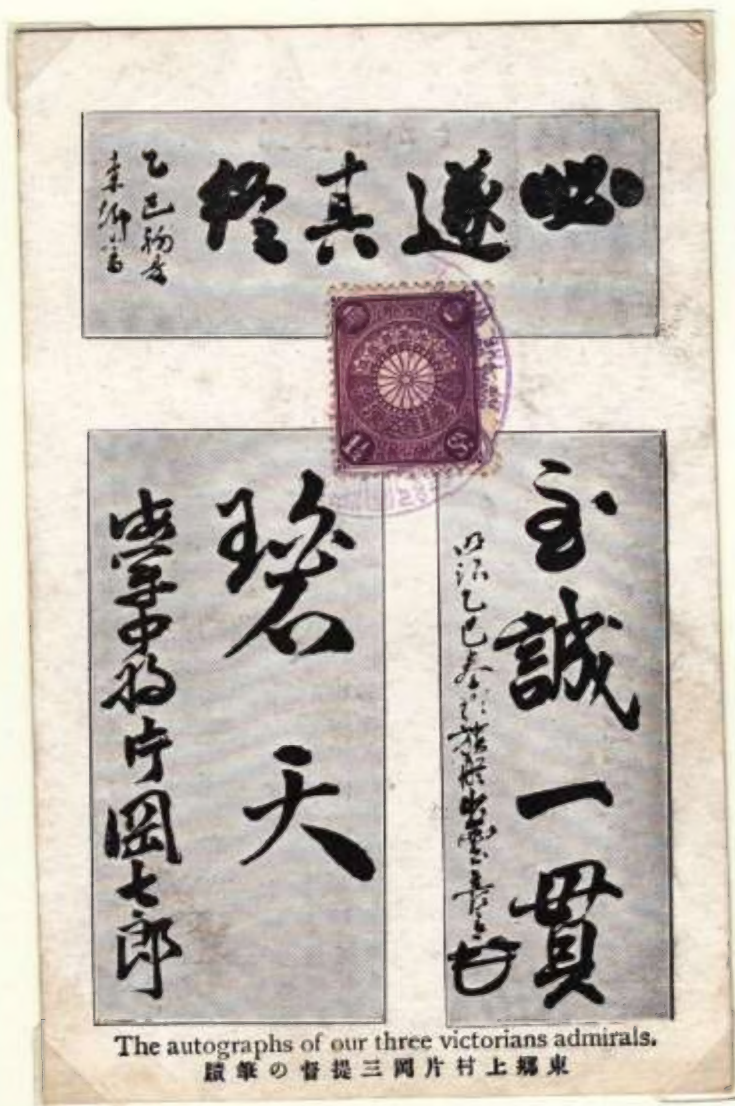 必遂其終
乙巳初春
東郷書
1½ Sn.
至誠一貫
明治乙巳春於旗艦出雲長官
碧天
海軍中将片岡七郎
The autographs of our three victorians admirals.
東郷上村片岡三提督の筆蹟